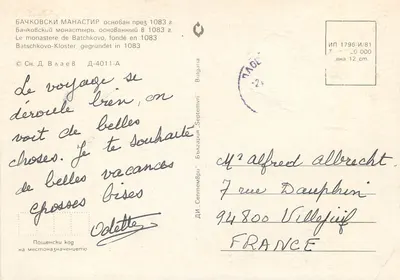 БАЧКОВСКИ МАНАСТИР основан през 1083 г.
Бачковский монастырь основанный в 1083 г.
Le monastère de Batchkovo, fondé en 1083
Batschkovo-Kloster gegründet in 1083
© Сн. Д. Влаев Д-4011-А
Le voyage se
déroule bien, on
voit de belles
choses. Je te souhaite
de belles vacances
Grosses bises
Odette
Пощенски код
на местоназначението
ДИ „Септември" България „Septemvri" Bulgaria
ПЛОВ
ИП 1795/И/81
500 000
дка 12 cm
Mr Alfred Albrecht
7 rue Dauphin
94800 Villejuif
FRANCE